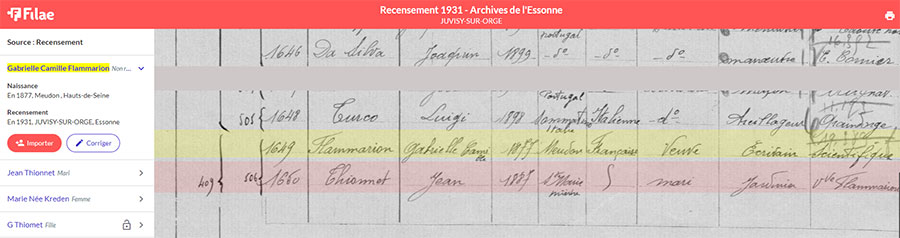 Filae
Recensement 1931 - Archives de l'Essonne
JUVISY-SUR-ORGE
Source : Recensement
Gabrielle Camille Flammarion
Naissance
En 1877, Meudon , Hauts-de-Seine
Recensement
En 1931, JUVISY-SUR-ORGE, Essonne
Importer
Corriger
Jean Thionnet Mari
Marie Née Kreden Femme
G Thiomet Fille
portugal
1646 Da Silva Joaquim 1899 - do - do - do manœuvre
Portugal
505 1648 Turco Luigi 1898 Italienne do
Italie
1649 Flammarion Gabrielle Camille 1877 Meudon Française Veuve Ecrivain Scientifique
409 506 1650 Thionnet Jean 1887 Ste Marie mari Jardinier Vve Flammarion